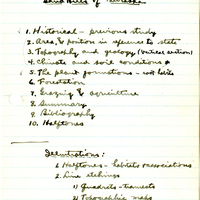 Sand Hills of Nebraska
1. Historical - previous study
2. Area, & position in reference to state
3. Topography and geology (vertical section)
4. Climate and soil conditions
5. The plant formations -
6. Forestation
7. Grazing & agriculture
8. Summary
9. Bibliography
10. Halftones
Illustrations:
1. Halftones - habitats & associations
2. Line etchings
1) Quadrats - transects
2) Topographic maps